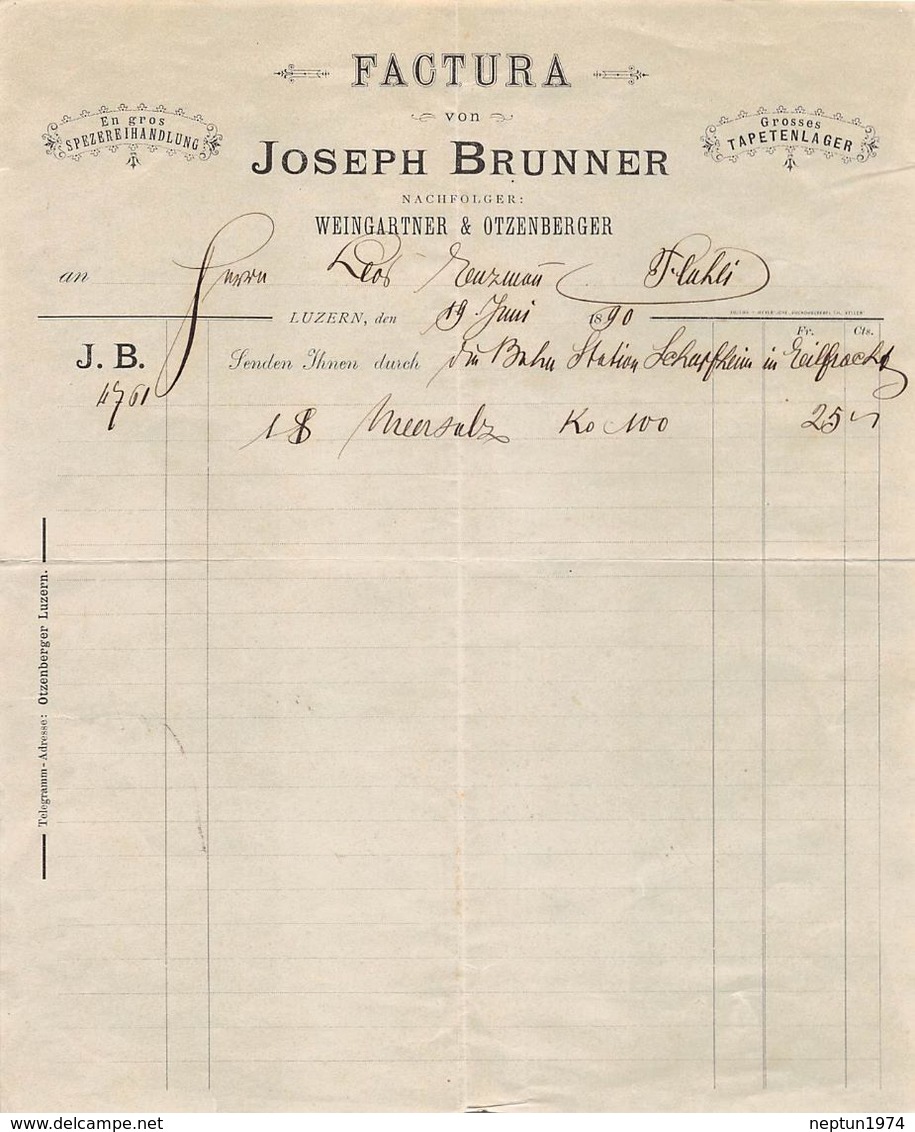 FACTURA
von
En gros
SPEZEREIHANDLUNG
Grosses
TAPETENLAGER
JOSEPH BRUNNER
NACHFOLGER:
WEINGARTNER & OTZENBERGER
an Herrn Leos Enzmann Fluhli
LUZERN, den 19. Juni 1890
Fr. Cts.
J. B. Senden Ihnen durch die Bahn Station Schüpfheim in Eilfracht
4761
1 S Meersalz Ko 100 25
Telegramm-Adresse: Otzenberger Luzern.
delcampe.net
neptun1974